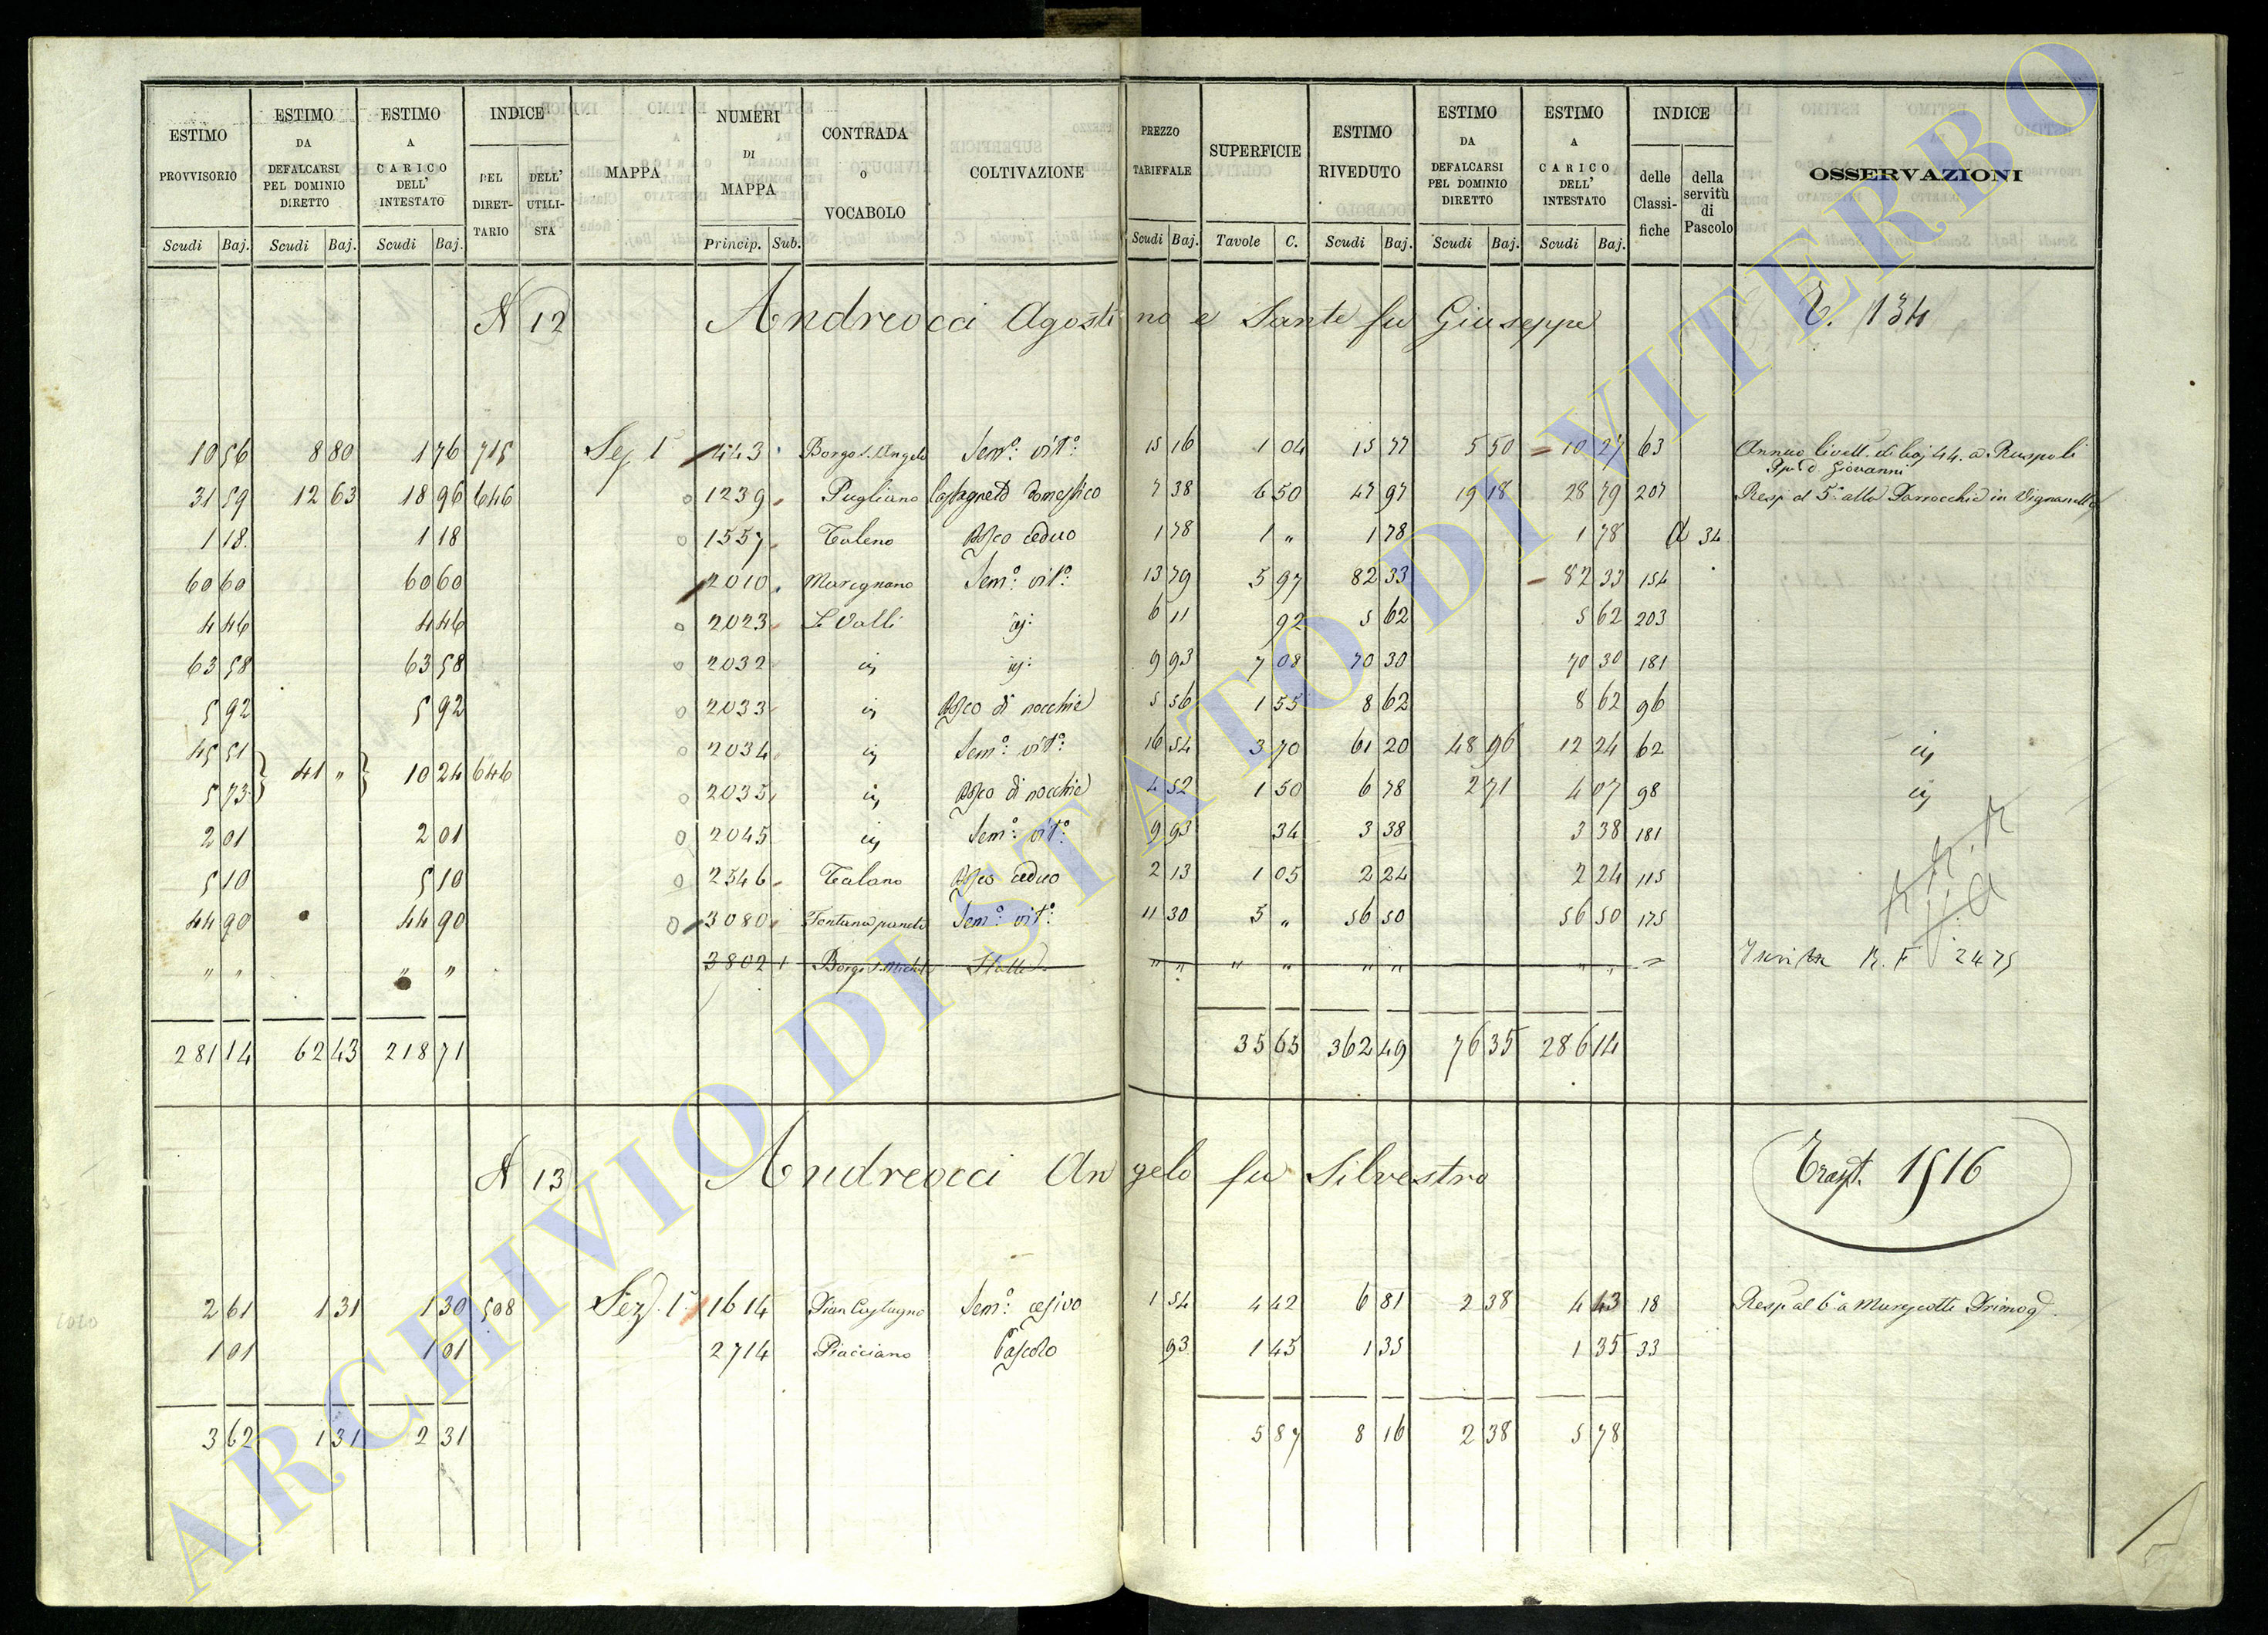 ESTIMO PROVVISORIO Scudi Baj. ESTIMO DA DEFALCARSI PEL DOMINIO DIRETTO Scudi Baj. ESTIMO A CARICO DELL' INTESTATO Scudi Baj. INDICE DEL DIRETTARIO DELL' UTILISTA MAPPA NUMERI DI MAPPA Princip. Sub. CONTRADA O VOCABOLO COLTIVAZIONE PREZZO TARIFFALE Scudi Baj. SUPERFICIE Tavole C. ESTIMO RIVEDUTO Scudi Baj. ESTIMO DA DEFALCARSI PEL DOMINIO DIRETTO Scudi Baj. ESTIMO A CARICO DELL' INTESTATO Scudi Baj. INDICE delle Classifiche della servitù di Pascolo OSSERVAZIONI
N 12 Andreocci Agostino e Sante fu Giuseppe T. 134
10 56 8 80 1 76 715 Sez 1ª 443 Borgo S. Angelo Sem.º vit.º 15 16 1 04 15 77 5 50 10 27 63 Annuo livell. di baj 44. a Ruspoli
Giovanni
31 59 12 63 18 96 646 1239 Pugliano Castagneto domestico 7 38 6 50 47 97 19 18 28 79 207 Resp al 5º alla Parrocchia in Vignanello
1 18 1 18 1557 Taleno Bosco ceduo 1 78 1 " 1 78 1 78 34
60 60 60 60 2010 Marignano Sem.º vit.º 13 79 5 97 82 33 82 33 154
4 46 4 46 2023 Le Valli iij: 6 11 92 5 62 5 62 203
63 58 63 58 2032 iij iij: 9 93 7 08 70 30 70 30 181
5 92 5 92 2033 iij Bosco di nocchie 5 56 1 55 8 62 8 62 96
45 51 2034 iij Sem.º vit.º 16 54 3 70 61 20 48 96 12 24 62 iij
41 " 10 24 646
5 73 2035 iij Bosco di nocchie 4 52 1 50 6 78 2 71 4 07 98 iij
2 01 2 01 2045 iij Sem.º vit.º 9 93 34 3 38 3 38 181
5 10 5 10 2546 Talano Bosco ceduo 2 13 1 05 2 24 2 24 115
44 90 44 90 3080 Fontana Sem.º vit.º 11 30 5 " 56 50 56 50 175
" " " " 3802 1 Borgo S. Michele Stalla " " " " " " " " R. F 2475
281 14 62 43 218 71 35 65 362 49 76 35 286 14
N 13 Andreocci Angelo fu Silvestro Trasp. 1516
2 61 1 31 1 30 508 Sez. 1ª 1614 Pian Castagno Sem.º cesivo 1 54 4 42 6 81 2 38 4 43 18 Resp al 6º a Marescotti Primog
1 01 1 01 2714 Piacciano Pascolo 93 1 45 1 35 1 35 33
3 62 1 31 2 31 5 87 8 16 2 38 5 78
ARCHIVIO DI STATO DI VITERBO